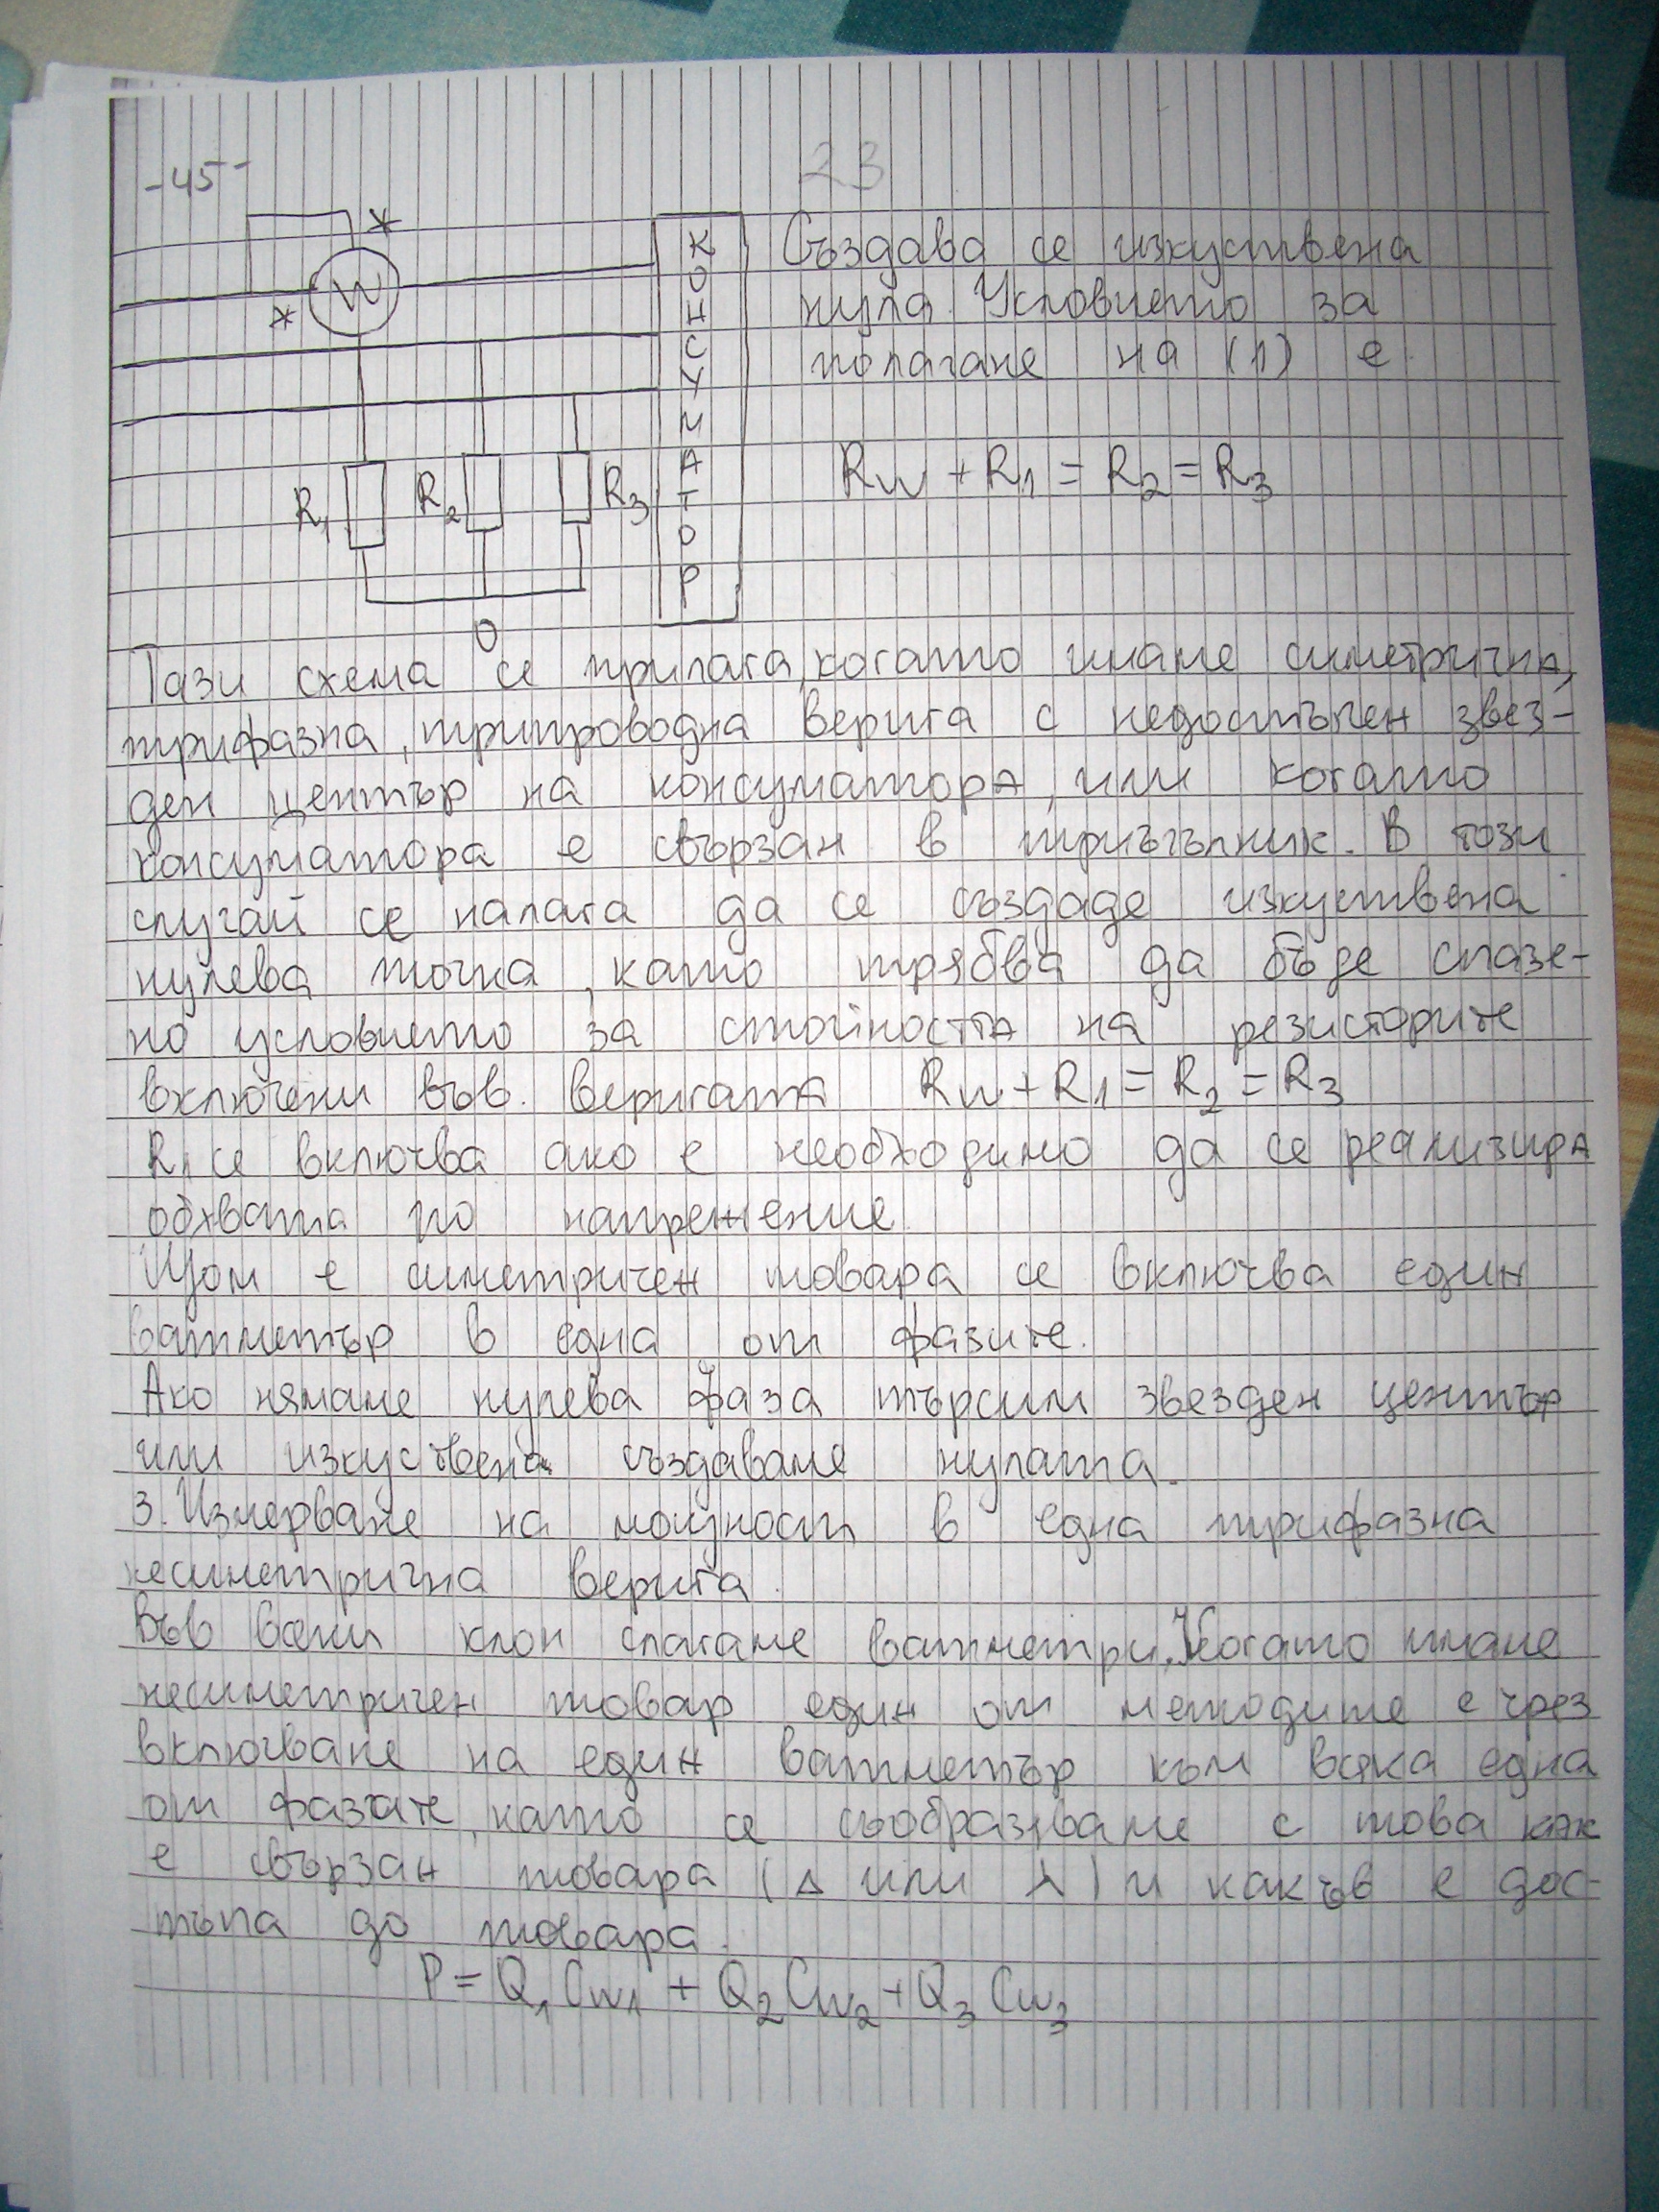 -45-
23
*
W
*
КОНСУМАТОР
Създава се изкуствена
нула. Условието за
полагане на (1) е
Rw + R1 = R2 = R3
R1
R2
R3
0
Тази схема се прилага, когато имаме симетрична,
трифазна, трипроводна верига с недостъпен звез-
ден център на консуматора, или когато
консуматора е свързан в триъгълник. В този
случай се налага да се създаде изкуствена
нулева точка, като трябва да бъде спазе-
но условието за стойността на резисторите
включени във веригата Rw + R1 = R2 = R3
R1 се включва ако е необходимо да се реализира
обхвата по напрежение.
Щом е симетричен товара се включва един
ватметър в една от фазите.
Ако нямаме нулева фаза търсим звезден център
или изкуствена създаваме нулата.
3. Измерване на мощност в една трифазна
несиметрична верига.
Във всеки клон слагаме ватметри. Когато имаме
несиметричен товар един от методите е чрез
включване на един ватметър към всяка една
от фазите, като се съобразяваме с това как
е свързан товара (Δ или ⅄) и какъв е дос-
тъпа до товара.
P = Q1 Cw1 + Q2 Cw2 + Q3 Cw3